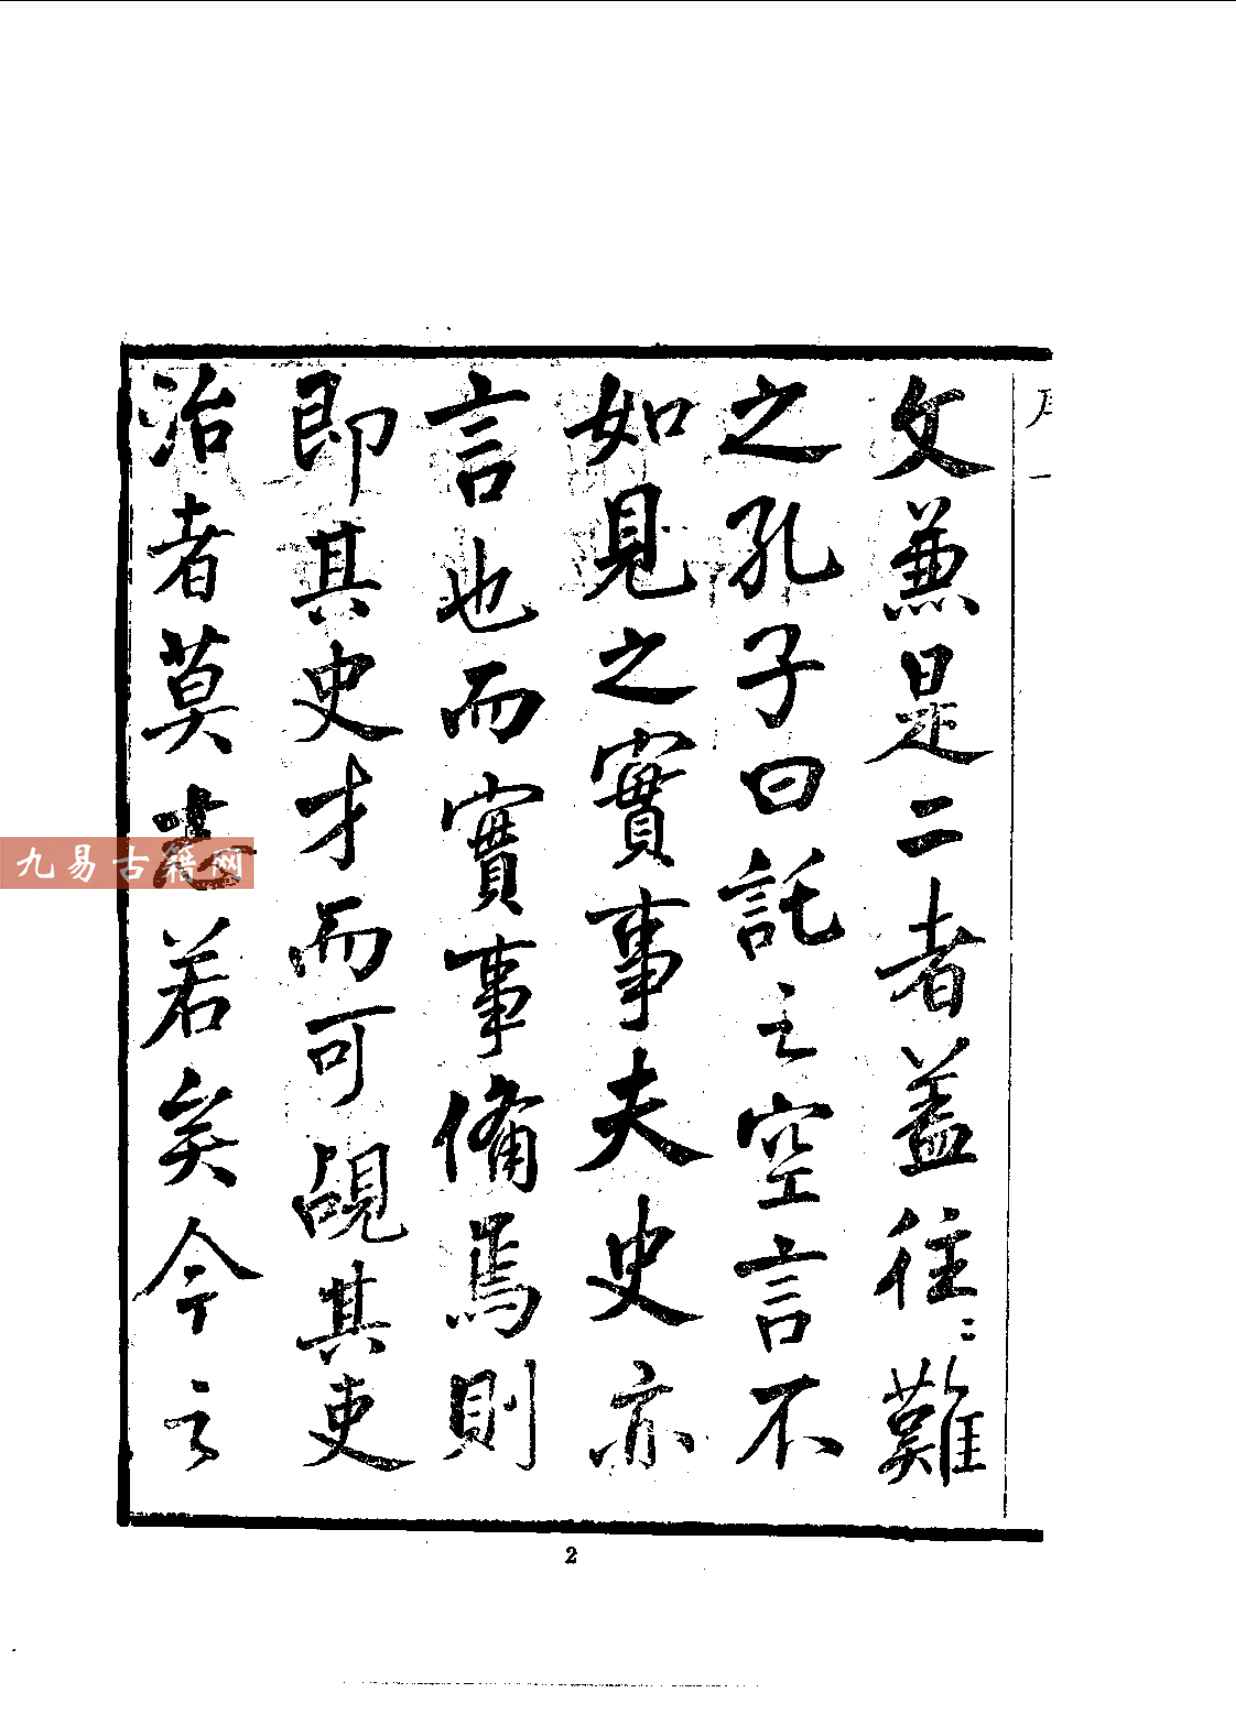 文兼是二者蓋往〻難
之孔子曰託之空言不
如見之實事夫史亦
言也而實事備焉則
即其史才而可覘其吏
治者莫志若矣今之
九易古籍网
2